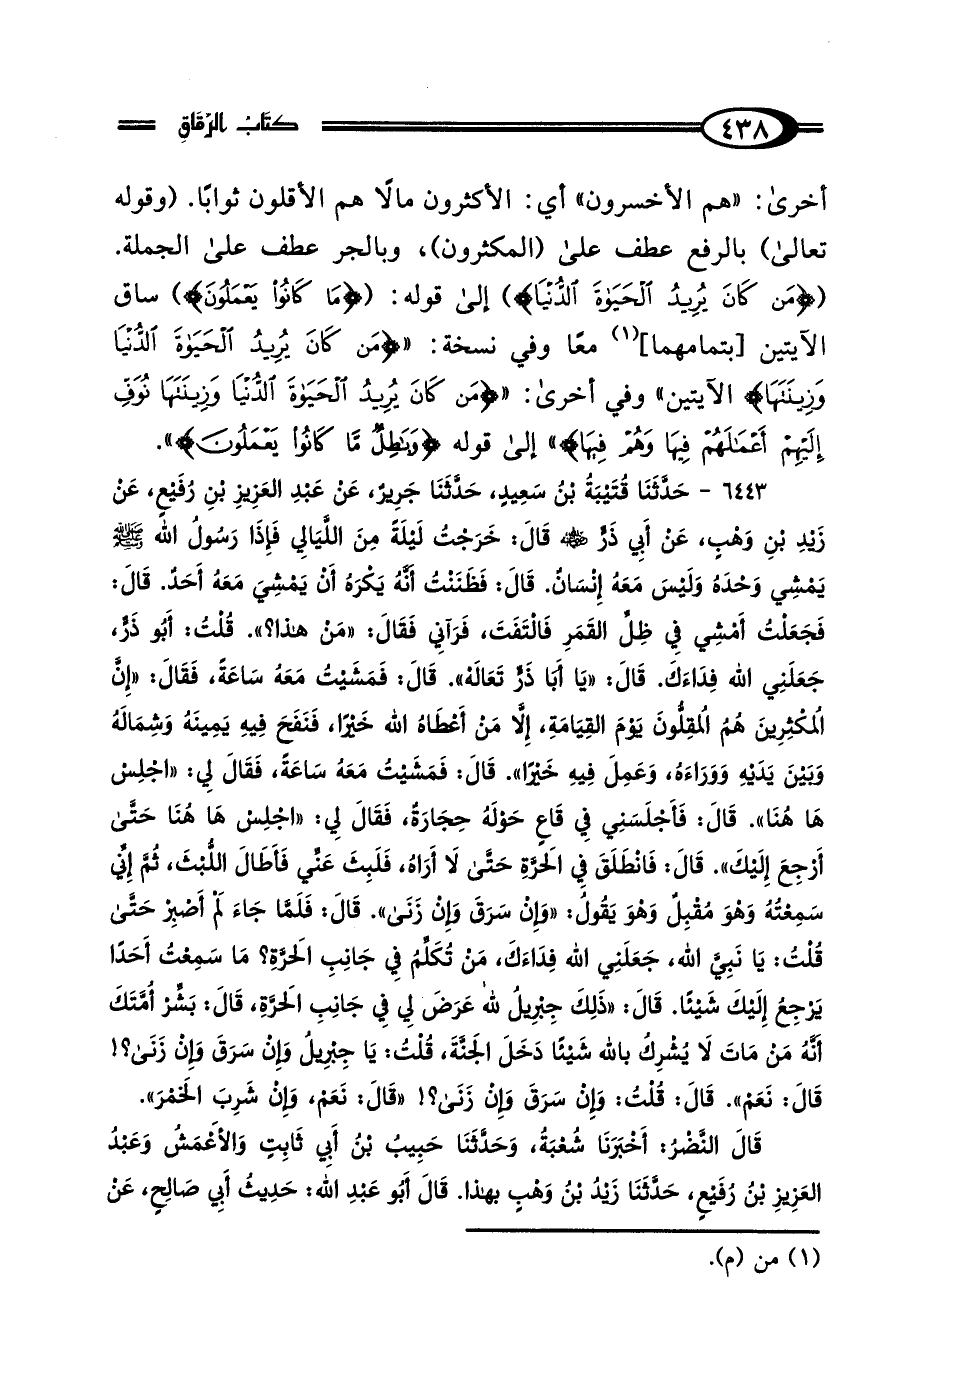 ٤٣٨ كتاب الرقاق
أخرىٰ: «هم الأخسرون» أي: الأكثرون مالًا هم الأقلون ثوابًا. (وقوله
تعالىٰ) بالرفع عطف علىٰ (المكثرون)، وبالجر عطف علىٰ الجملة.
(﴿مَن كَانَ يُرِيدُ ٱلْحَيَوٰةَ ٱلدُّنْيَا﴾) إلىٰ قوله: (﴿مَا كَانُوا۟ يَعْمَلُونَ﴾) ساق
الآيتين [بتمامهما](١) معًا وفي نسخة: «﴿مَن كَانَ يُرِيدُ ٱلْحَيَوٰةَ ٱلدُّنْيَا
وَزِينَتَهَا﴾ الآيتين» وفي أخرىٰ: «﴿مَن كَانَ يُرِيدُ ٱلْحَيَوٰةَ ٱلدُّنْيَا وَزِينَتَهَا نُوَفِّ
إِلَيْهِمْ أَعْمَٰلَهُمْ فِيهَا وَهُمْ فِيهَا﴾» إلىٰ قوله ﴿وَبَٰطِلٌ مَّا كَانُوا۟ يَعْمَلُونَ﴾».
٦٤٤٣ - حَدَّثَنَا قُتَيْبَةُ بْنُ سَعِيدٍ، حَدَّثَنَا جَرِيرٌ، عَنْ عَبْدِ العَزِيزِ بْنِ رُفَيْعٍ، عَنْ
زَيْدِ بْنِ وَهْبٍ، عَنْ أَبِي ذَرٍّ ﷺ قَالَ: خَرَجْتُ لَيْلَةً مِنَ اللَّيَالِي فَإِذَا رَسُولُ اللهِ ﷺ
يَمْشِي وَحْدَهُ وَلَيْسَ مَعَهُ إِنْسَانٌ. قَالَ: فَظَنَنْتُ أَنَّهُ يَكْرَهُ أَنْ يَمْشِيَ مَعَهُ أَحَدٌ. قَالَ:
فَجَعَلْتُ أَمْشِي فِي ظِلِّ القَمَرِ فَالْتَفَتَ، فَرَآنِي فَقَالَ: «مَنْ هٰذا؟». قُلْتُ: أَبُو ذَرٍّ،
جَعَلَنِي اللهُ فِدَاءَكَ. قَالَ: «يَا أَبَا ذَرٍّ تَعَالَهْ». قَالَ: فَمَشَيْتُ مَعَهُ سَاعَةً، فَقَالَ: «إِنَّ
المُكْثِرِينَ هُمُ المُقِلُّونَ يَوْمَ القِيَامَةِ، إِلَّا مَنْ أَعْطَاهُ اللهُ خَيْرًا، فَنَفَحَ فِيهِ يَمِينَهُ وَشِمَالَهُ
وَبَيْنَ يَدَيْهِ وَوَرَاءَهُ، وَعَمِلَ فِيهِ خَيْرًا». قَالَ: فَمَشَيْتُ مَعَهُ سَاعَةً، فَقَالَ لِي: «اجْلِسْ
هَا هُنَا». قَالَ: فَأَجْلَسَنِي فِي قَاعٍ حَوْلَهُ حِجَارَةٌ، فَقَالَ لِي: «اجْلِسْ هَا هُنَا حَتَّىٰ
أَرْجِعَ إِلَيْكَ». قَالَ: فَانْطَلَقَ فِي الحَرَّةِ حَتَّىٰ لَا أَرَاهُ، فَلَبِثَ عَنِّي فَأَطَالَ اللُّبْثَ، ثُمَّ إِنِّي
سَمِعْتُهُ وَهْوَ مُقْبِلٌ وَهْوَ يَقُولُ: «وَإِنْ سَرَقَ وَإِنْ زَنَىٰ». قَالَ: فَلَمَّا جَاءَ لَمْ أَصْبِرْ حَتَّىٰ
قُلْتُ: يَا نَبِيَّ اللهِ، جَعَلَنِي اللهُ فِدَاءَكَ، مَنْ تُكَلِّمُ فِي جَانِبِ الحَرَّةِ؟ مَا سَمِعْتُ أَحَدًا
يَرْجِعُ إِلَيْكَ شَيْئًا. قَالَ: «ذَلِكَ جِبْرِيلُ ﷷ عَرَضَ لِي فِي جَانِبِ الحَرَّةِ، قَالَ: بَشِّرْ أُمَّتَكَ
أَنَّهُ مَنْ مَاتَ لَا يُشْرِكُ بِاللهِ شَيْئًا دَخَلَ الجَنَّةَ، قُلْتُ: يَا جِبْرِيلُ وَإِنْ سَرَقَ وَإِنْ زَنَىٰ؟!
قَالَ: نَعَمْ». قَالَ: قُلْتُ: وَإِنْ سَرَقَ وَإِنْ زَنَىٰ؟! «قَالَ: نَعَمْ، وَإِنْ شَرِبَ الخَمْرَ».
قَالَ النَّضْرُ: أَخْبَرَنَا شُعْبَةُ، وَحَدَّثَنَا حَبِيبُ بْنُ أَبِي ثَابِتٍ وَالأَعْمَشُ وَعَبْدُ
العَزِيزِ بْنُ رُفَيْعٍ، حَدَّثَنَا زَيْدُ بْنُ وَهْبٍ بهذا. قَالَ أَبُو عَبْدِ اللهِ: حَدِيثُ أَبِي صَالِحٍ، عَنْ
(١) من (م).